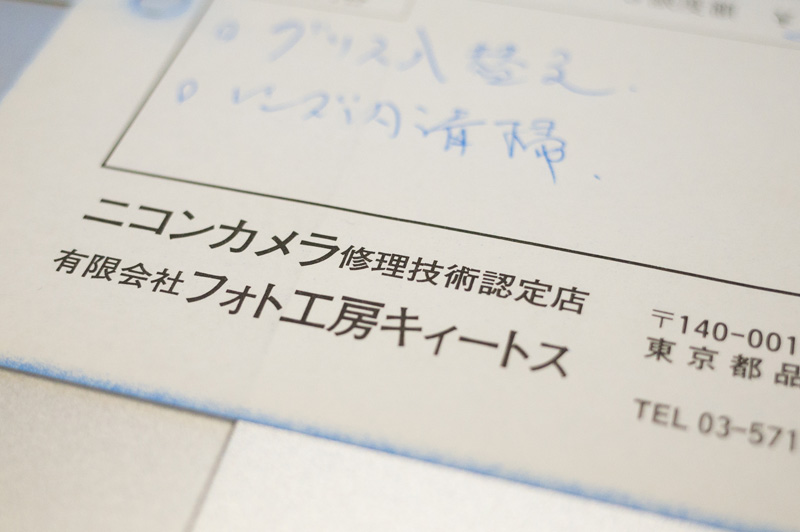 ○ グリス入替え.
○ レンズ内清掃.
ニコンカメラ修理技術認定店
有限会社フォト工房キィートス
〒140-001
東京都品
TEL 03-571